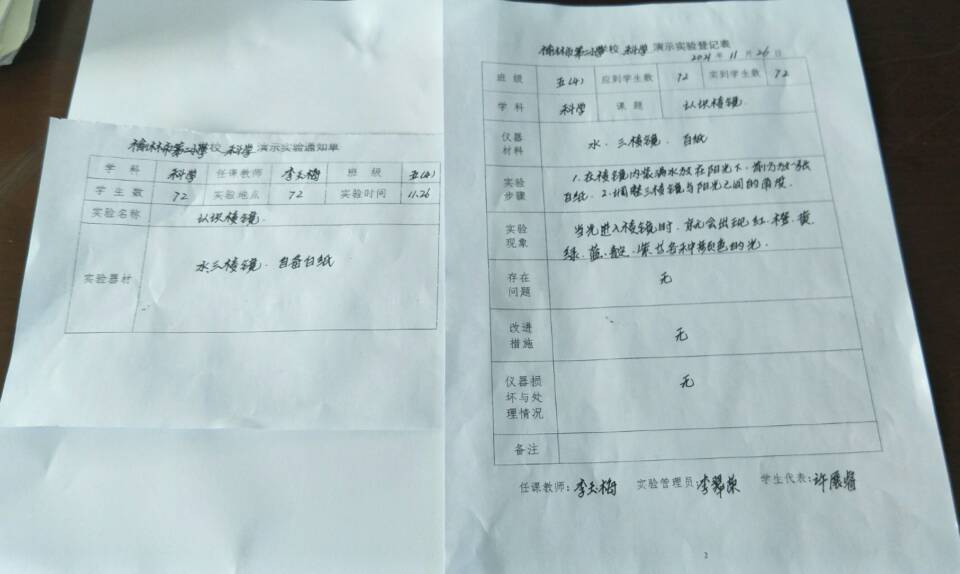 榆林市第二小学校 科学 演示实验通知单
学 科 科学 任课教师 李天梅 班 级 五(4)
学 生 数 72 实验地点 72 实验时间 11.26
实验名称 认识棱镜.
实验器材 水三棱镜. 自备白纸
榆林市第二小学校 科学 演示实验登记表
2021 年 11 月 26 日
班 级 五(4) 应到学生数 72 实到学生数 72
学 科 科学 课 题 认识棱镜.
仪器
材料 水. 三棱镜. 白纸
实验
步骤
1.在棱镜内装满水放在阳光下.前方放一张
白纸. 2.调整三棱镜与阳光之间的角度.
实验
现象
当光进入棱镜时.就会出现红.橙.黄.
绿.蓝.靛.紫各种颜色的光.
存在
问题 无
改进
措施 无
仪器损
坏与处
理情况 无
备注
任课教师: 李天梅 实验管理员: 李翠荣 学生代表: 许展睿
2